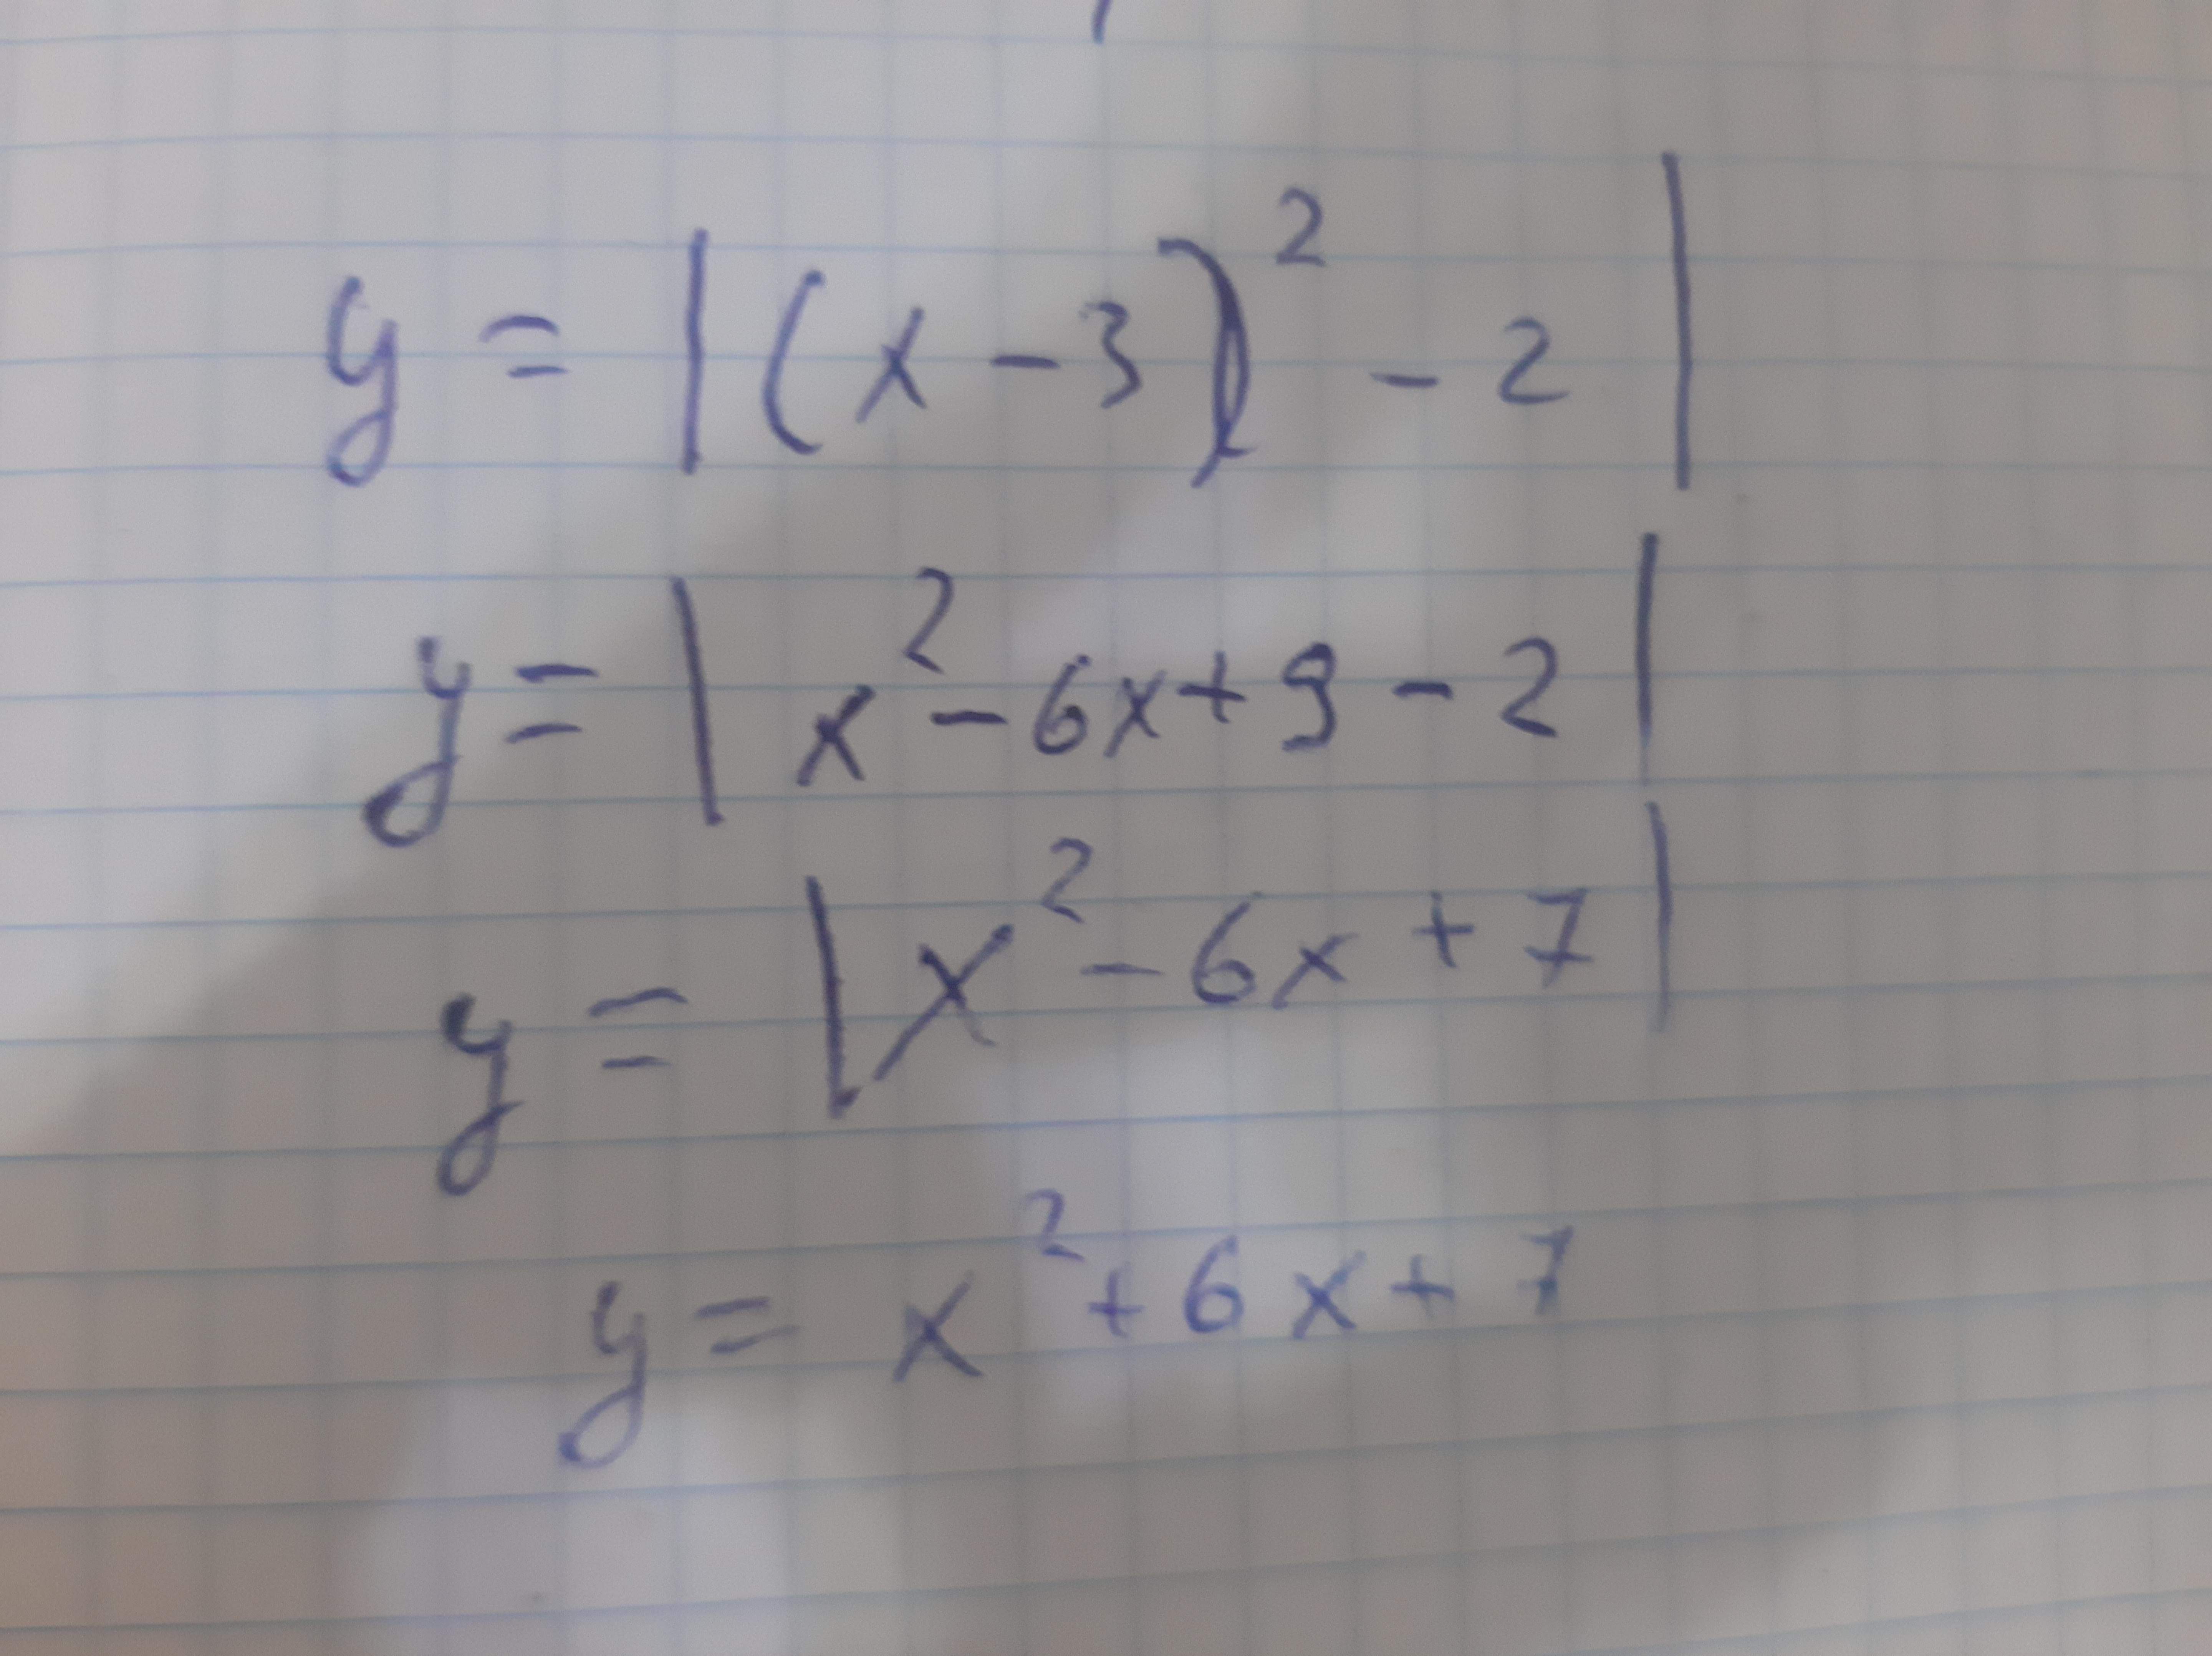 y = |(x-3)² - 2|
y = |x² - 6x + 9 - 2|
y = |x² - 6x + 7|
y = x² + 6x + 7